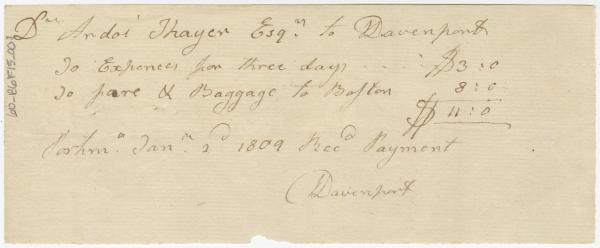 Dr. Andoi Thayer Esqr. to Davenport
To Expences for three days - - - $3:0
To fare & Baggage to Boston 8:0
$11:0
Portsmo. Jany. 2d 1809 Recd Payment
Davenport
60-86F15.001